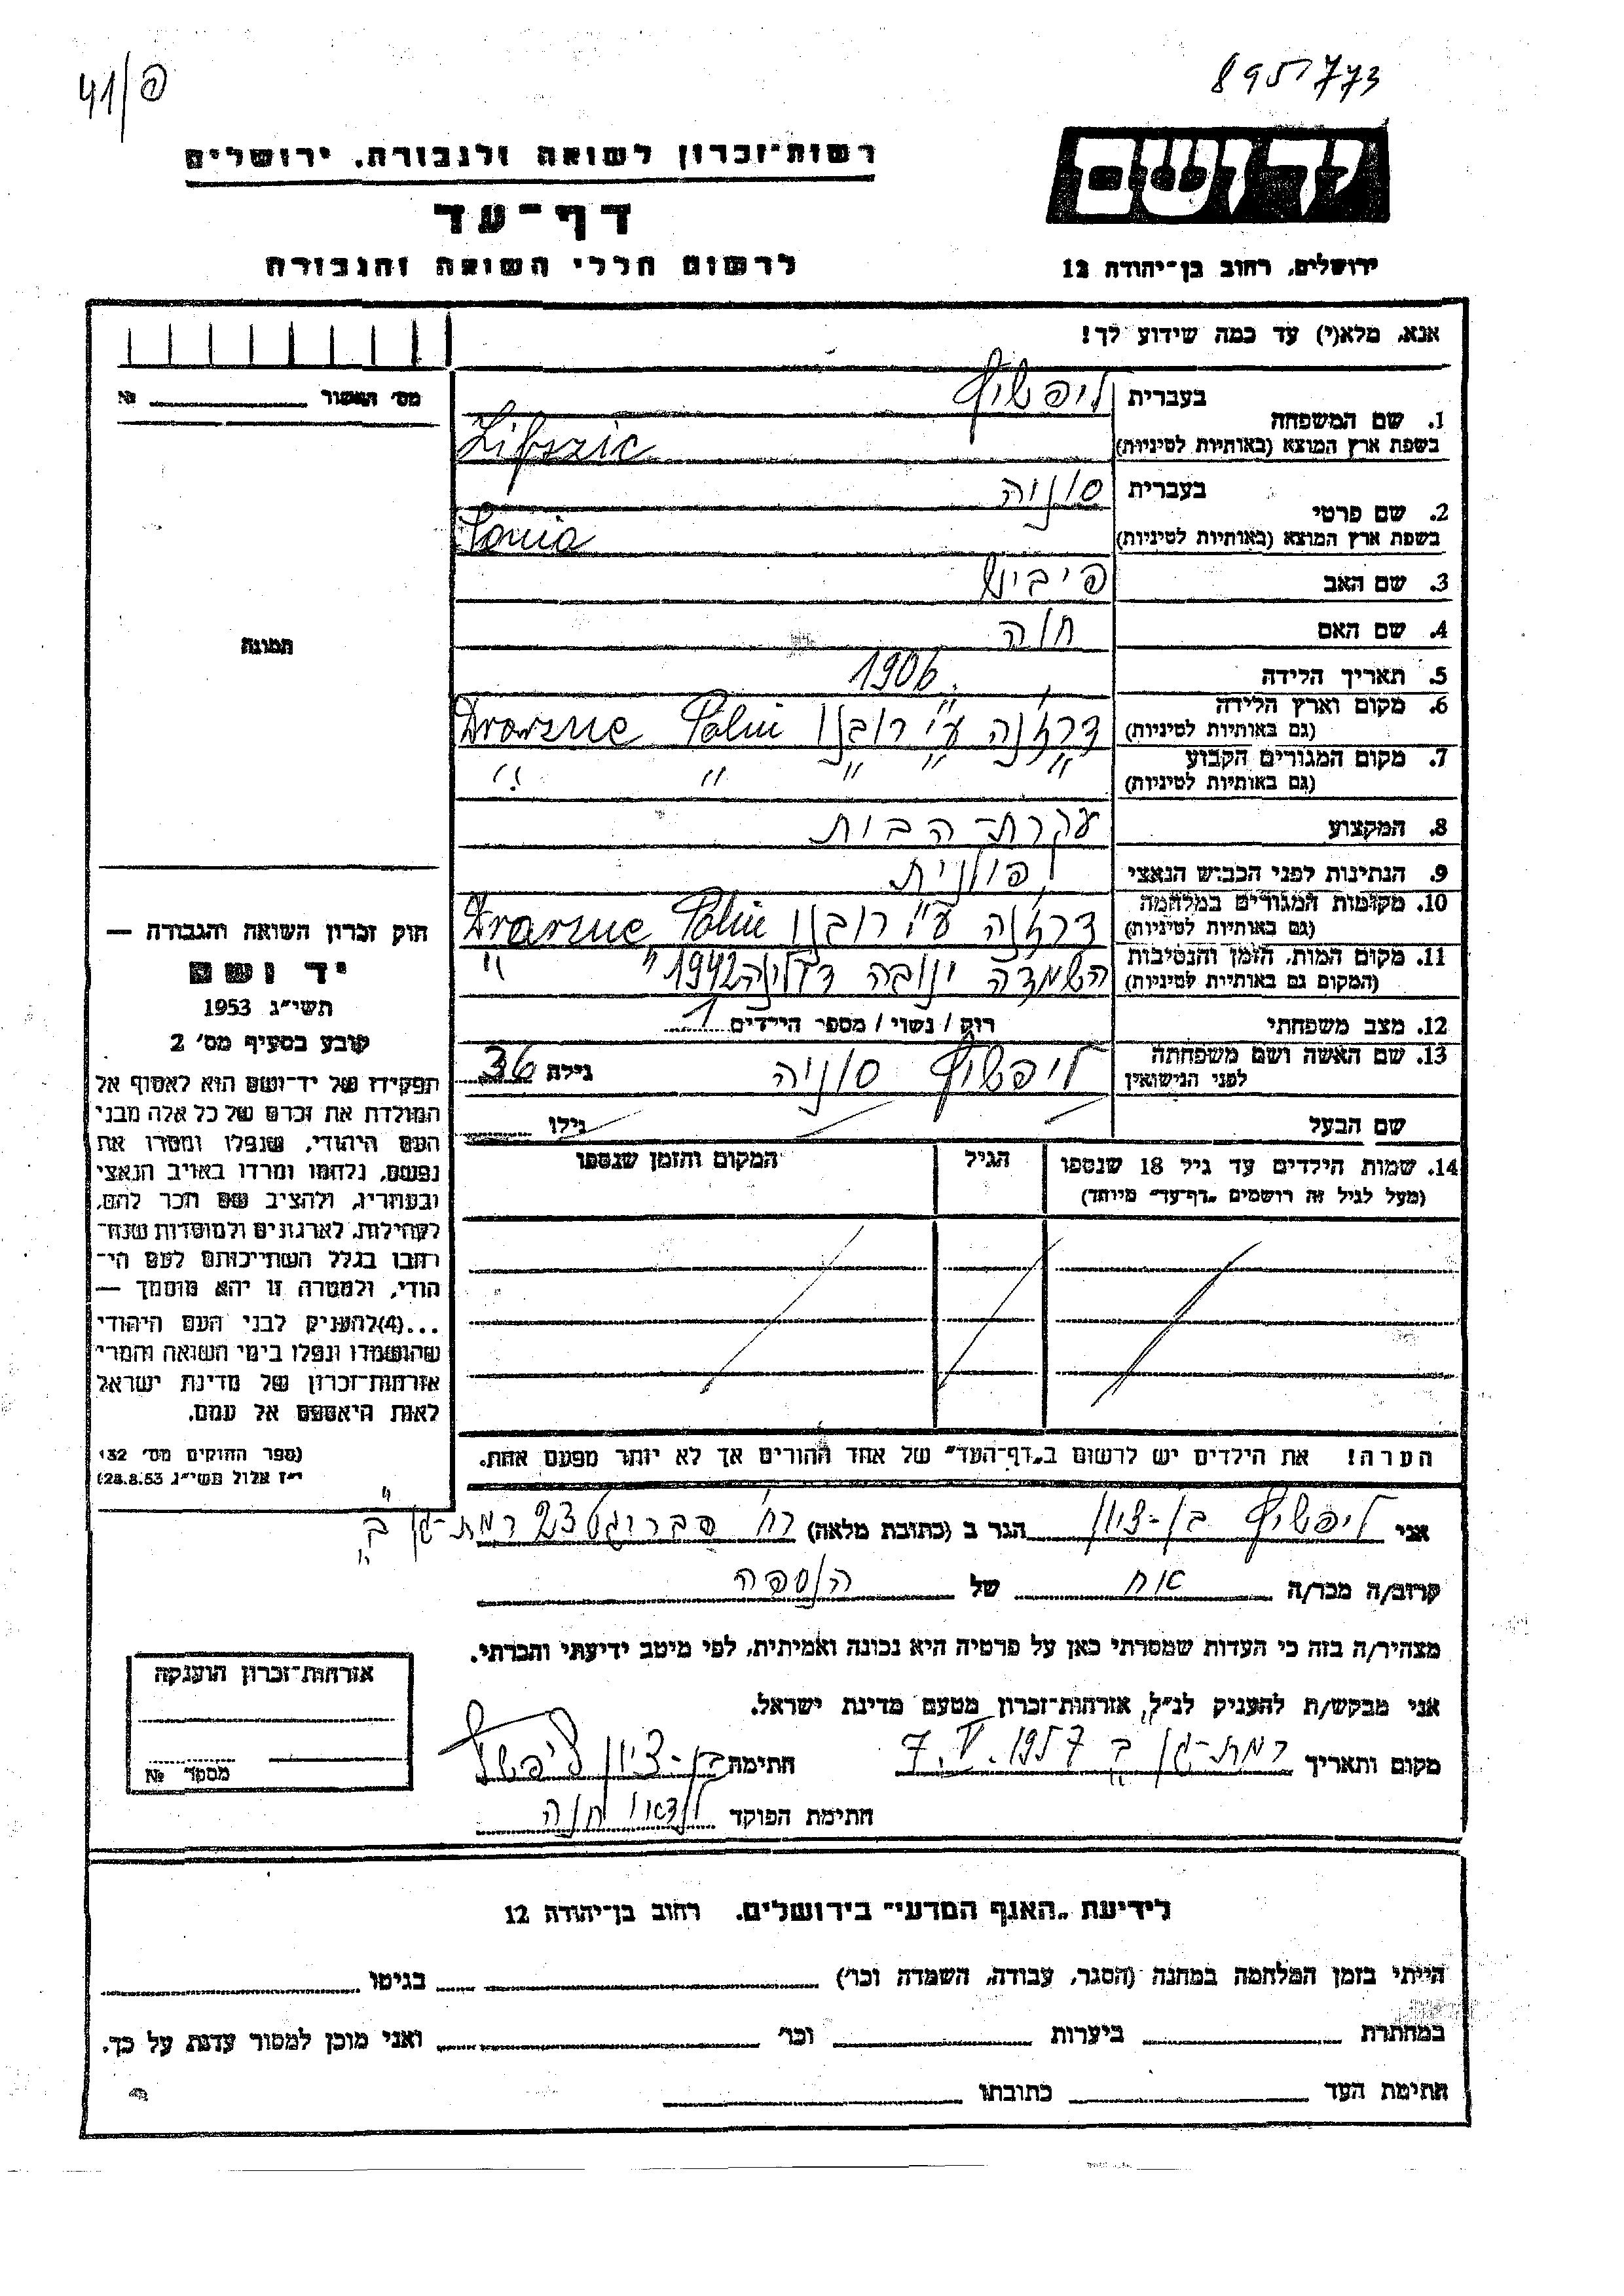 41/פ
8951773
רשות־זכרון לשואה ולגבורה, ירושלים
יד ושם
דף־עד
לרשום חללי השואה והגבורה
ירושלים, רחוב בן־יהודה 12
אנא, מלא(י) עד כמה שידוע לך!
מס׳ האשור № 
1. שם המשפחה בעברית ליפשיץ
בשפת ארץ המוצא (באותיות לטיניות) Lifszic
2. שם פרטי בעברית סוניה
בשפת ארץ המוצא (באותיות לטיניות) Sonia
3. שם האב פייביש
4. שם האם חנה
תמונה
5. תאריך הלידה 1906
6. מקום וארץ הלידה (גם באותיות לטיניות) דרזנה ע״י רובנו Drazne Polin
7. מקום המגורים הקבוע (גם באותיות לטיניות) ״ ״ ״ ״ ״
8. המקצוע עקרת־הבית
9. הנתינות לפני הכבוש הנאצי פולנית
10. מקומות המגורים במלחמה (גם באותיות לטיניות) דרזנה ע״י רובנו Drazne Polin
11. מקום המות, הזמן והנסיבות (המקום גם באותיות לטיניות) השמדה 1942 ״ ״
12. מצב משפחתי רוק / נשוי / מספר הילדים 1
13. שם האשה ושם משפחתה לפני הנישואין ליפשיץ סוניה גילה 36
שם הבעל גילו
14. שמות הילדים עד גיל 18 שנספו הגיל המקום והזמן שנספו
(מעל לגיל זה רושמים „דף־עד״ מיוחד)
חוק זכרון השואה והגבורה —
יד ושם
תשי״ג 1953
קובע בסעיף מס׳ 2
תפקידו של יד־ושם הוא לאסוף אל
המולדת את זכרם של כל אלה מבני
העם היהודי, שנפלו ומסרו את
נפשם, נלחמו ומרדו באויב הנאצי
ובעוזריו, ולהציב שם וזכר להם,
לקהילות, לארגונים ולמוסדות שנח־
רבו בגלל השתייכותם לעם הי־
הודי, ולמטרה זו יהא מוסמך —
...(4)להעניק לבני העם היהודי
שהושמדו ונפלו בימי השואה והמרי
אזרחות־זכרון של מדינת ישראל
לאות היאספם אל עמם.
(ספר החוקים מס׳ 132
י״ז אלול תשי״ג 28.8.53)
הערה! את הילדים יש לרשום ב„דף־העד״ של אחד ההורים אך לא יותר מפעם אחת.
אני ליפשיץ בן־ציון הגר ב (כתובת מלאה) רח׳ 23 רמת־גן ב׳
קרוב/ה מכר/ה אח של הנספה
מצהיר/ה בזה כי העדות שמסרתי כאן על פרטיה היא נכונה ואמיתית, לפי מיטב ידיעתי והכרתי.
אני מבקש/ת להעניק לנ״ל, אזרחות־זכרון מטעם מדינת ישראל.
מקום ותאריך רמת־גן ב 7.V.1957 חתימה בן־ציון ליפשיץ
חתימת הפוקד לנדאו חנה
אזרחות־זכרון הוענקה
מספר №
לידיעת „האגף המדעי״ בירושלים, רחוב בן־יהודה 12
הייתי בזמן המלחמה במחנה (הסגר, עבודה, השמדה וכו׳) בגיטו
במחתרת ביערות וכו׳ ואני מוכן למסור עדות על כך.
חתימת העד כתובתו